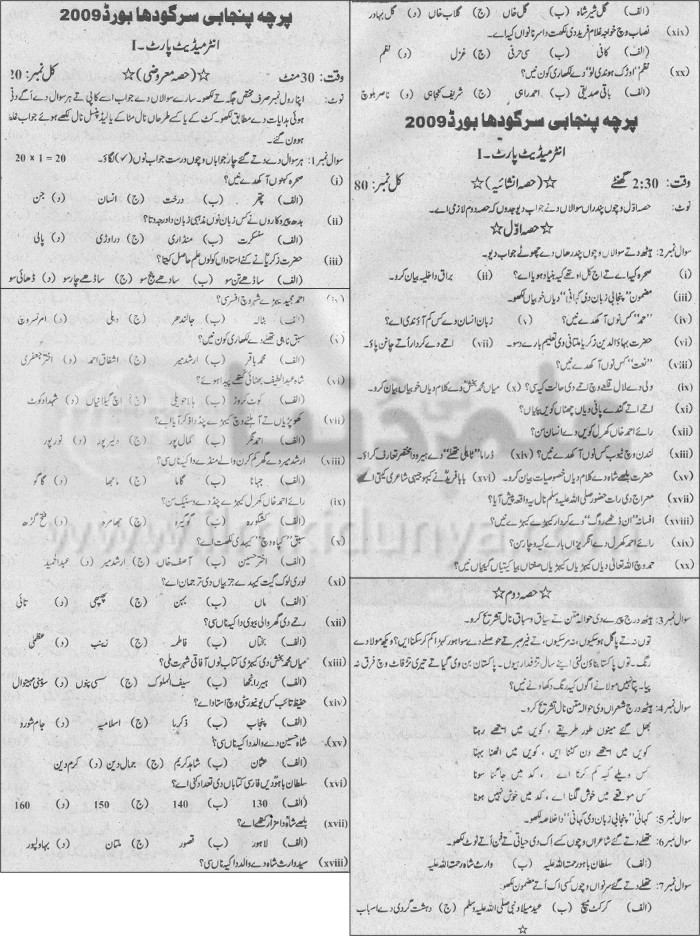 پرچہ پنجابی سرگودھا بورڈ 2009
انٹرمیڈیٹ پارٹ-I
وقت: 30 منٹ ☆(حصہ معروضی)☆ کل نمبر: 20
نوٹ: اپنا رول نمبر صرف مختص جگہ تے لکھو۔ سارے سوالاں دے جواب ایسے کاپی تے ہر سوال دے اگے دتی
ہوئی ہدایات دے مطابق لکھو۔ کٹ کے یا کسے طرحاں نال مٹا کے یا لیڈ پنسل نال لکھے ہوئے جواب غلط
ہوون گے۔
سوال نمبر 1: ہر سوال دے دتے گئے چار جواباں وچوں درست جواب نوں (✓) لگاؤ۔ 20 x 1 = 20
(i) صحرہ کہنوں آکھدے نیں؟
(الف) پتھر (ب) درخت (ج) انسان (د) جن
(ii) بدھ پیروکاراں نے کس زبان نوں مذہبی زبان دا درجہ دتا؟
(الف) سنسکرت (ب) منڈاری (ج) دراوڑی (د) پالی
(iii) حضرت زکریاؒ نے کنے استاداں کولوں علم حاصل کیتا؟
(الف) ساڈھے تن سو (ب) ساڈھے پنج سو (ج) ساڈھے چار سو (د) ڈھائی سو
(iv) احمد مجید کیہڑے شہر وچ افسر سی؟
(الف) بٹالہ (ب) جالندھر (ج) دہلی (د) امرتسر وچ
(v) سبق ٹاہلی تھلے دے لکھاری کون نیں؟
(الف) محمد باقر (ب) ارشد میر (ج) اشفاق احمد (د) اختر جعفری
(vi) شاہ عبداللطیف بھٹائی کتھے پیدا ہوئے؟
(الف) کوٹ کروڑ (ب) ہالا حویلی (ج) اچ گیلانیاں (د) شہداد کوٹ
(vii) کھوپڑیاں تے آہلنے وچ کیہڑے پنڈ دا ذکر آیا اے؟
(الف) احمد نگر (ب) کمال پور (ج) دلیر پور (د) نور پور
(viii) ارشد میر دے گھر کم کرن والے منڈے دا کیہ ناں سی؟
(الف) جہانا (ب) گاما (ج) ماجھا (د) گاگو
(ix) رائے احمد خاں کھرل کیہڑے پنڈ دے وسنیک سن؟
(الف) کشکورہ (ب) گوگیرا (ج) جھامرہ (د) فتح گڑھ
(x) سبق "کپاہ وچ" کیہدی لکھت اے؟
(الف) اختر حسین (ب) آصف خاں (ج) ارشد میر (د) عبدالمجید
(xi) لوری لوک گیت کیہدے جذبیاں دی ترجمان اے؟
(الف) ماں (ب) بہن (ج) پھپھی (د) تائی
(xii) رحمے دی گھر والی بیوی دا کیہ ناں سی؟
(الف) جنتاں (ب) فاطمہ (ج) زینب (د) عظمیٰ
(xiii) میاں محمد بخش دی کیہڑی کتاب نوں آفاقی شہرت ملی؟
(الف) ہیر رانجھا (ب) سیف الملوک (ج) سسی پنوں (د) سوہنی مہینوال
(xiv) حفیظ تائب کس یونیورسٹی وچ استاد اے؟
(الف) پنجاب (ب) ذکریا (ج) اسلامیہ (د) جام شورو
(xv) شاہ حسین دے والد دا کیہ ناں سی؟
(الف) عثمان (ب) شاہد کریم (ج) جمال دین (د) کرم دین
(xvi) سلطان باہو دیاں فارسی کتاباں دی تعداد کنی اے؟
(الف) 130 (ب) 140 (ج) 150 (د) 160
(xvii) بلھے شاہ دا مزار کتھے اے؟
(الف) لاہور (ب) قصور (ج) ملتان (د) بہاولپور
(xviii) سید وارث شاہ دے والد دا کیہ ناں سی؟
(الف) گل شیر شاہ (ب) گل خاں (ج) گلاب خاں (د) گل بہادر
(xix) نصاب وچ خواجہ غلام فرید دی لکھت دا سرناواں کیہ اے۔
(الف) کافی (ب) سی حرفی (ج) غزل (د) نظم
(xx) نظم "اوڑک ہوندی لو" دے لکھاری کون نیں؟
(الف) باقی صدیقی (ب) احمد راہی (ج) شریف کنجاہی (د) ناصر بلوچ
پرچہ پنجابی سرگودھا بورڈ 2009
انٹرمیڈیٹ پارٹ-I
وقت: 2:30 گھنٹے ☆(حصہ انشائیہ)☆ کل نمبر: 80
نوٹ: حصہ اوّل وچوں پندراں سوالاں دے جواب دیو جدوں کہ حصہ دوم لازمی اے۔
☆حصہ اوّل☆
سوال نمبر 2: ہیٹھ دتے سوالاں وچوں پندرھاں دے چھوٹے جواب دیو۔
(i) صحرہ کیہ اے تے اج کل اوتھے کیہ بنیا ہویا اے؟ (ii) براق دا حلیہ بیان کرو۔
(iii) مضمون "پنجابی زبان دی کہانی" دیاں خوبیاں لکھو۔
(iv) "حمد" کس نوں آکھدے نیں؟ (v) زبان انسان دے کس کم آؤندی اے؟
(vi) حضرت بہاؤ الدین زکریا ملتانی دی تعلیم بارے دسو۔ (vii) احمے دے کردار اُتے چانن پاؤ۔
(viii) "نعت" کس نوں آکھدے نیں؟
(ix) ولی دے لال قلعے وچ احمے دی حالت کیسی؟ (x) میاں محمد بخش دے کلام دیاں خوبیاں بیان کرو۔
(xi) احمے اتے گندے پانی دیاں چھٹاں کیوں پیاں؟
(xii) رائے احمد خاں کھرل کیوں دے انسان سن؟
(xiii) لندن وچ ٹیوب کس نوں آکھدے نیں؟ (xiv) ڈراما "ٹاہلی تھلے" دے ہیرو دا مختصر تعارف کراؤ۔
(xv) حضرت بلھے شاہ دے کلام دیاں خصوصیات بیان کرو۔ (xvi) بابا فرید نے کیہو جیہی شاعری کیتی اے؟
(xvii) معراج دی رات حضور صلی اللہ علیہ وسلم نال کیہ واقعہ پیش آیا؟
(xviii) افسانہ "ان ڈٹھے روگ" دے کردار کیہڑے کیہڑے نیں؟
(xix) رائے احمد کھرل دے انگریزاں بارے کیہ وچار سن؟
(xx) حمد وچ اللہ تعالیٰ دیاں کیہڑیاں کیہڑیاں صفتاں بیان کیتیاں گئیاں نیں؟
☆حصہ دوم☆
سوال نمبر 3: ہیٹھ درج پیرے دی حوالہ متن تے سیاق و سباق نال تشریح کرو۔
سوال نمبر 4: ہیٹھ درج شعراں دی حوالہ متن نال تشریح کرو۔
بھل گئے مینوں طور طریقے، کویں میں ایتھے رہنا
کویں میں ایتھے دن کٹنا ایں، کویں میں اٹھنا بہنا
کس ویلے کیہ کم کرنا اے، کد میں جاگنا سونا
کس موقعے میں خوش لگنا اے، کد میں خوش نہیں ہونا
سوال نمبر 5: کہانی "پنجابی زبان دی کہانی" دا خلاصہ لکھو۔
سوال نمبر 6: تھلے دتے گئے شاعراں وچوں کسے اک دی حیاتی تے فن اُتے نوٹ لکھو۔
(الف) سلطان باہو رحمۃ اللہ علیہ (ب) وارث شاہ رحمۃ اللہ علیہ
سوال نمبر 7: تھلے دتے گئے سرنویں وچوں کسی اک اُتے مضمون لکھو:
(الف) کرکٹ میچ (ب) عید میلاد نبی صلی اللہ علیہ وسلم (ج) دہشت گردی دے اسباب